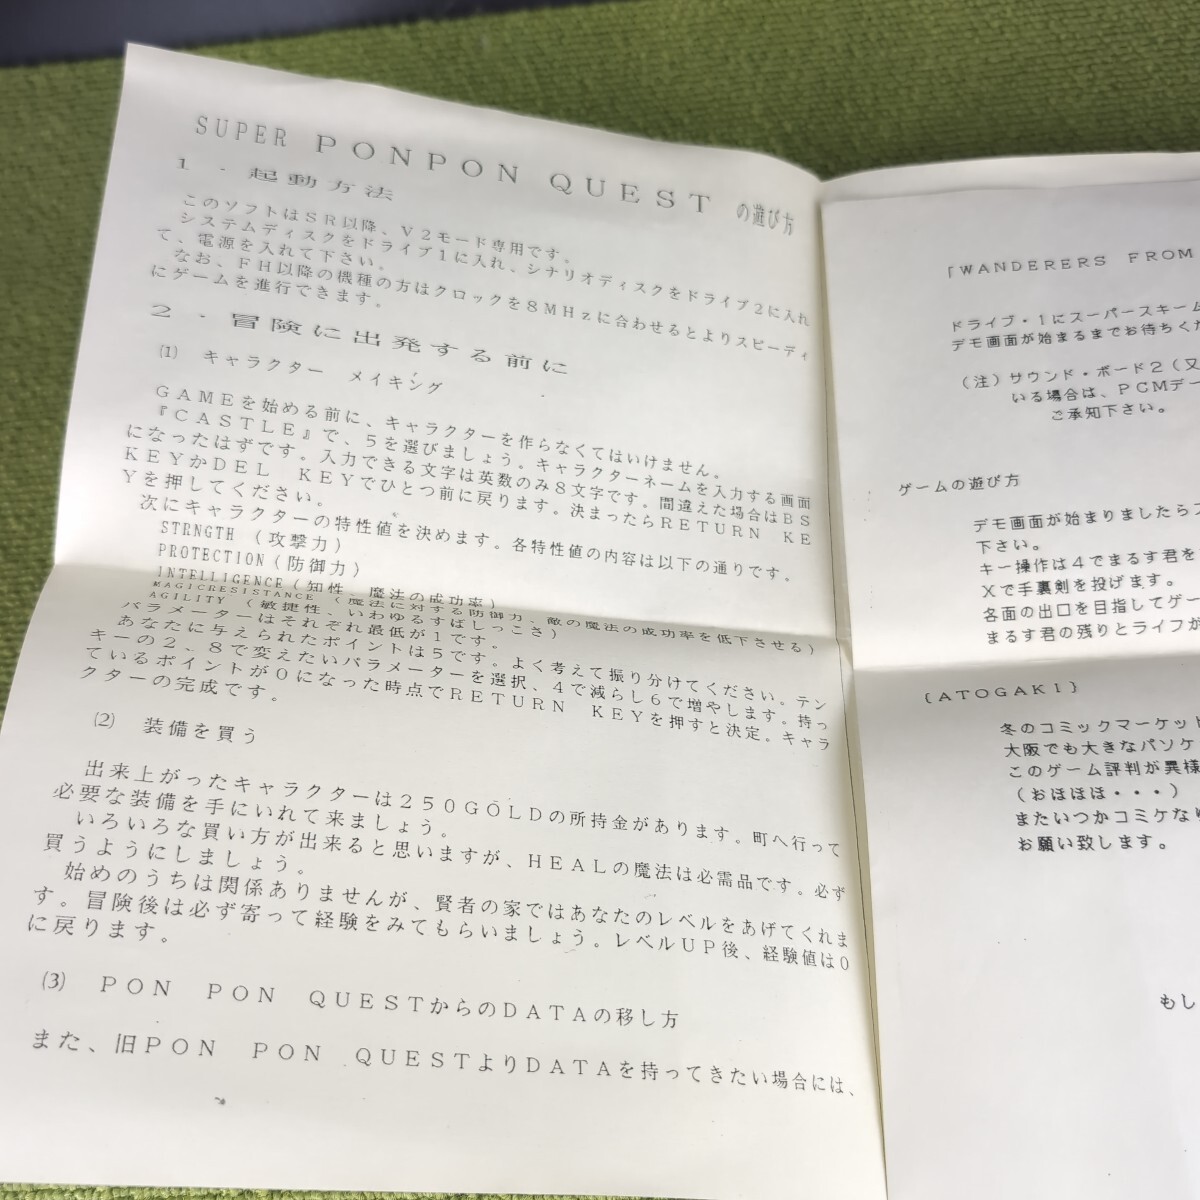 SUPER PONPON QUEST の遊び方
1．起動方法
このソフトはSR以降、V2モード専用です。
システムディスクをドライブ1に入れ、シナリオディスクをドライブ2に入れ
て、電源を入れて下さい。
なお、FH以降の機種の方はクロックを8MHzに合わせるとよりスピーディ
にゲームを進行できます。
2．冒険に出発する前に
(1) キャラクター メイキング
GAMEを始める前に、キャラクターを作らなくてはいけません。
『CASTLE』で、5を選びましょう。キャラクターネームを入力する画面
になったはずです。入力できる文字は英数のみ8文字です。間違えた場合はBS
KEYかDEL KEYでひとつ前に戻ります。決まったらRETURN KE
Yを押してください。
次にキャラクターの特性値を決めます。各特性値の内容は以下の通りです。
STRNGTH (攻撃力)
PROTECTION (防御力)
INTELLIGENCE (知性、魔法の成功率)
MAGICRESISTANCE (魔法に対する防御力、敵の魔法の成功率を低下させる)
AGILITY (敏捷性、いわゆるすばしっこさ)
パラメーターはそれぞれ最低が1です。
あなたに与えられたポイントは5です。よく考えて振り分けてください。テン
キーの2、8で変えたいパラメーターを選択、4で減らし6で増やします。持っ
ているポイントが0になった時点でRETURN KEYを押すと決定。キャラ
クターの完成です。
(2) 装備を買う
出来上がったキャラクターは250GOLDの所持金があります。町へ行って
必要な装備を手にいれて来ましょう。
いろいろな買い方が出来ると思いますが、HEALの魔法は必需品です。必ず
買うようにしましょう。
始めのうちは関係ありませんが、賢者の家ではあなたのレベルをあげてくれま
す。冒険後は必ず寄って経験をみてもらいましょう。レベルUP後、経験値は0
に戻ります。
(3) PON PON QUESTからのDATAの移し方
また、旧PON PON QUESTよりDATAを持ってきたい場合には、
「WANDERERS FROM
ドライブ・1にスーパースキーム
デモ画面が始まるまでお待ちくだ
(注) サウンド・ボード2 (又
いる場合は、PCMデー
ご承知下さい。
ゲームの遊び方
デモ画面が始まりましたらス
下さい。
キー操作は4でまるす君を
Xで手裏剣を投げます。
各面の出口を目指してゲー
まるす君の残りとライフが
{ATOGAKI}
冬のコミックマーケット
大阪でも大きなパソケ
このゲーム評判が異様
(おほほほ・・・)
またいつかコミケなり
お願い致します。
もし